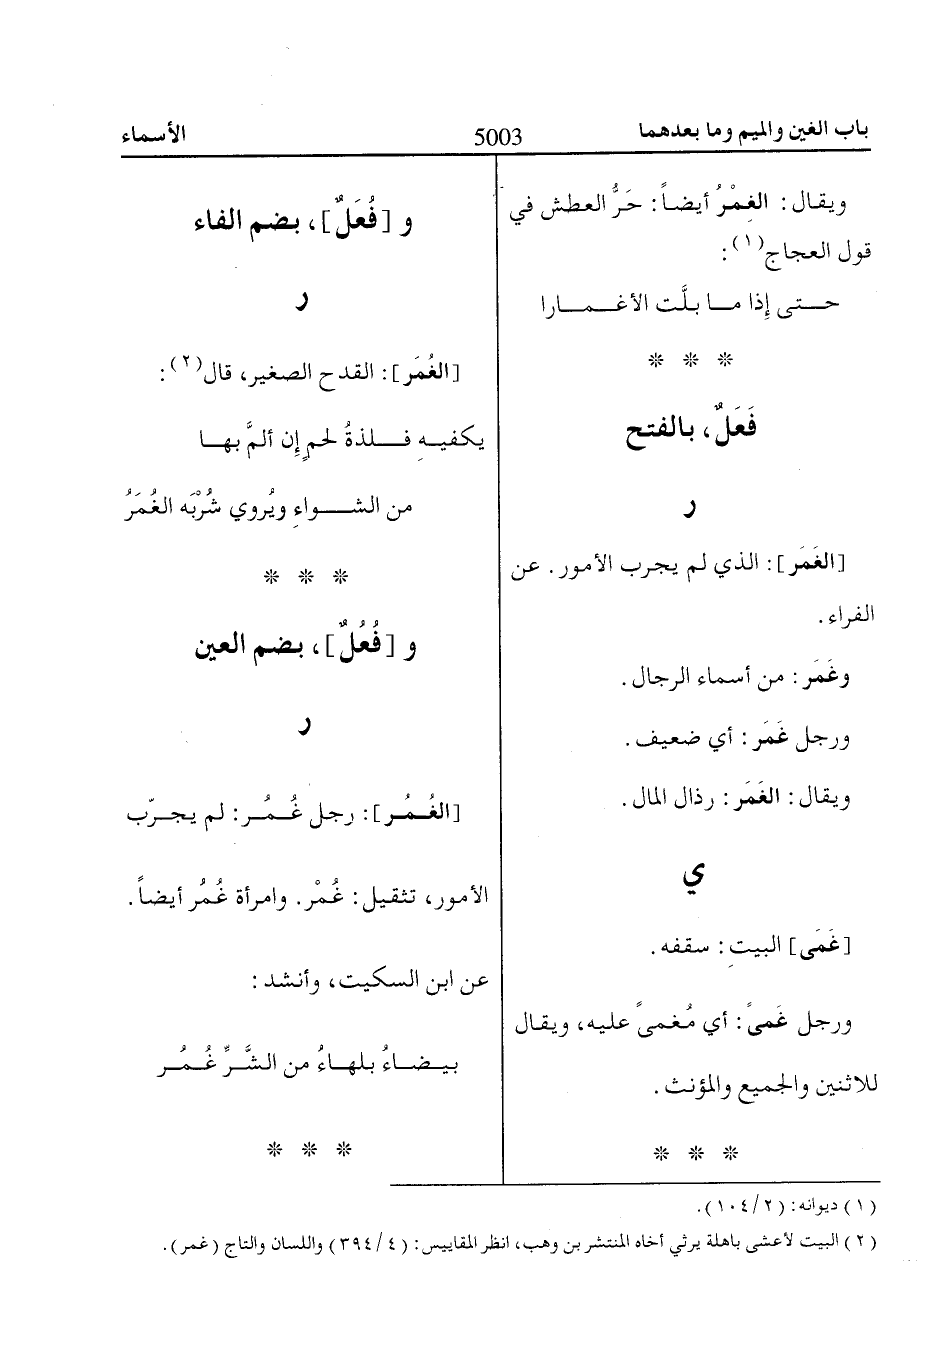 باب الغين والميم وما بعدهما
5003
الأسماء
ويقال: الغِمْرُ أيضاً: حَرُّ العطش في
قول العجاج(١):
حـتـى إِذا مـا بلَّت الأغـمـارا
* * *
فَعَلٌ، بالفتح
ر
[الغَمَر]: الذي لم يجرب الأمور. عن
الفراء.
وغَمَر: من أسماء الرجال.
ورجل غَمَر: أي ضعيف.
ويقال: الغَمَر: رذال المال.
ي
[غَمَى] البيتِ: سقفه.
ورجل غَمىً: أي مُغمىً عليه، ويقال
للاثنين والجميع والمؤنث.
* * *
و [فُعَلٌ]، بضم الفاء
ر
[الغُمَر]: القدح الصغير، قال(٢):
يكفيـهِ فـلـذةُ لحمٍ إِن ألمَّ بهـا
من الشـواءِ ويُروي شُرْبَه الغُمَرُ
* * *
و [فُعُلٌ]، بضم العين
ر
[الغُـمُـر]: رجل غُـمُـر: لم يجـرّب
الأمور، تثقيل: غُمْر. وامرأة غُمُر أيضاً.
عن ابن السكيت، وأنشد:
بيـضـاءُ بلهـاءُ من الشَّرِّ غُـمُـر
* * *
(١) ديوانه: (١٠٤/٢).
(٢) البيت لأعشى باهلة يرثي أخاه المنتشر بن وهب، انظر المقاييس: (٣٩٤/٤) واللسان والتاج (غمر).